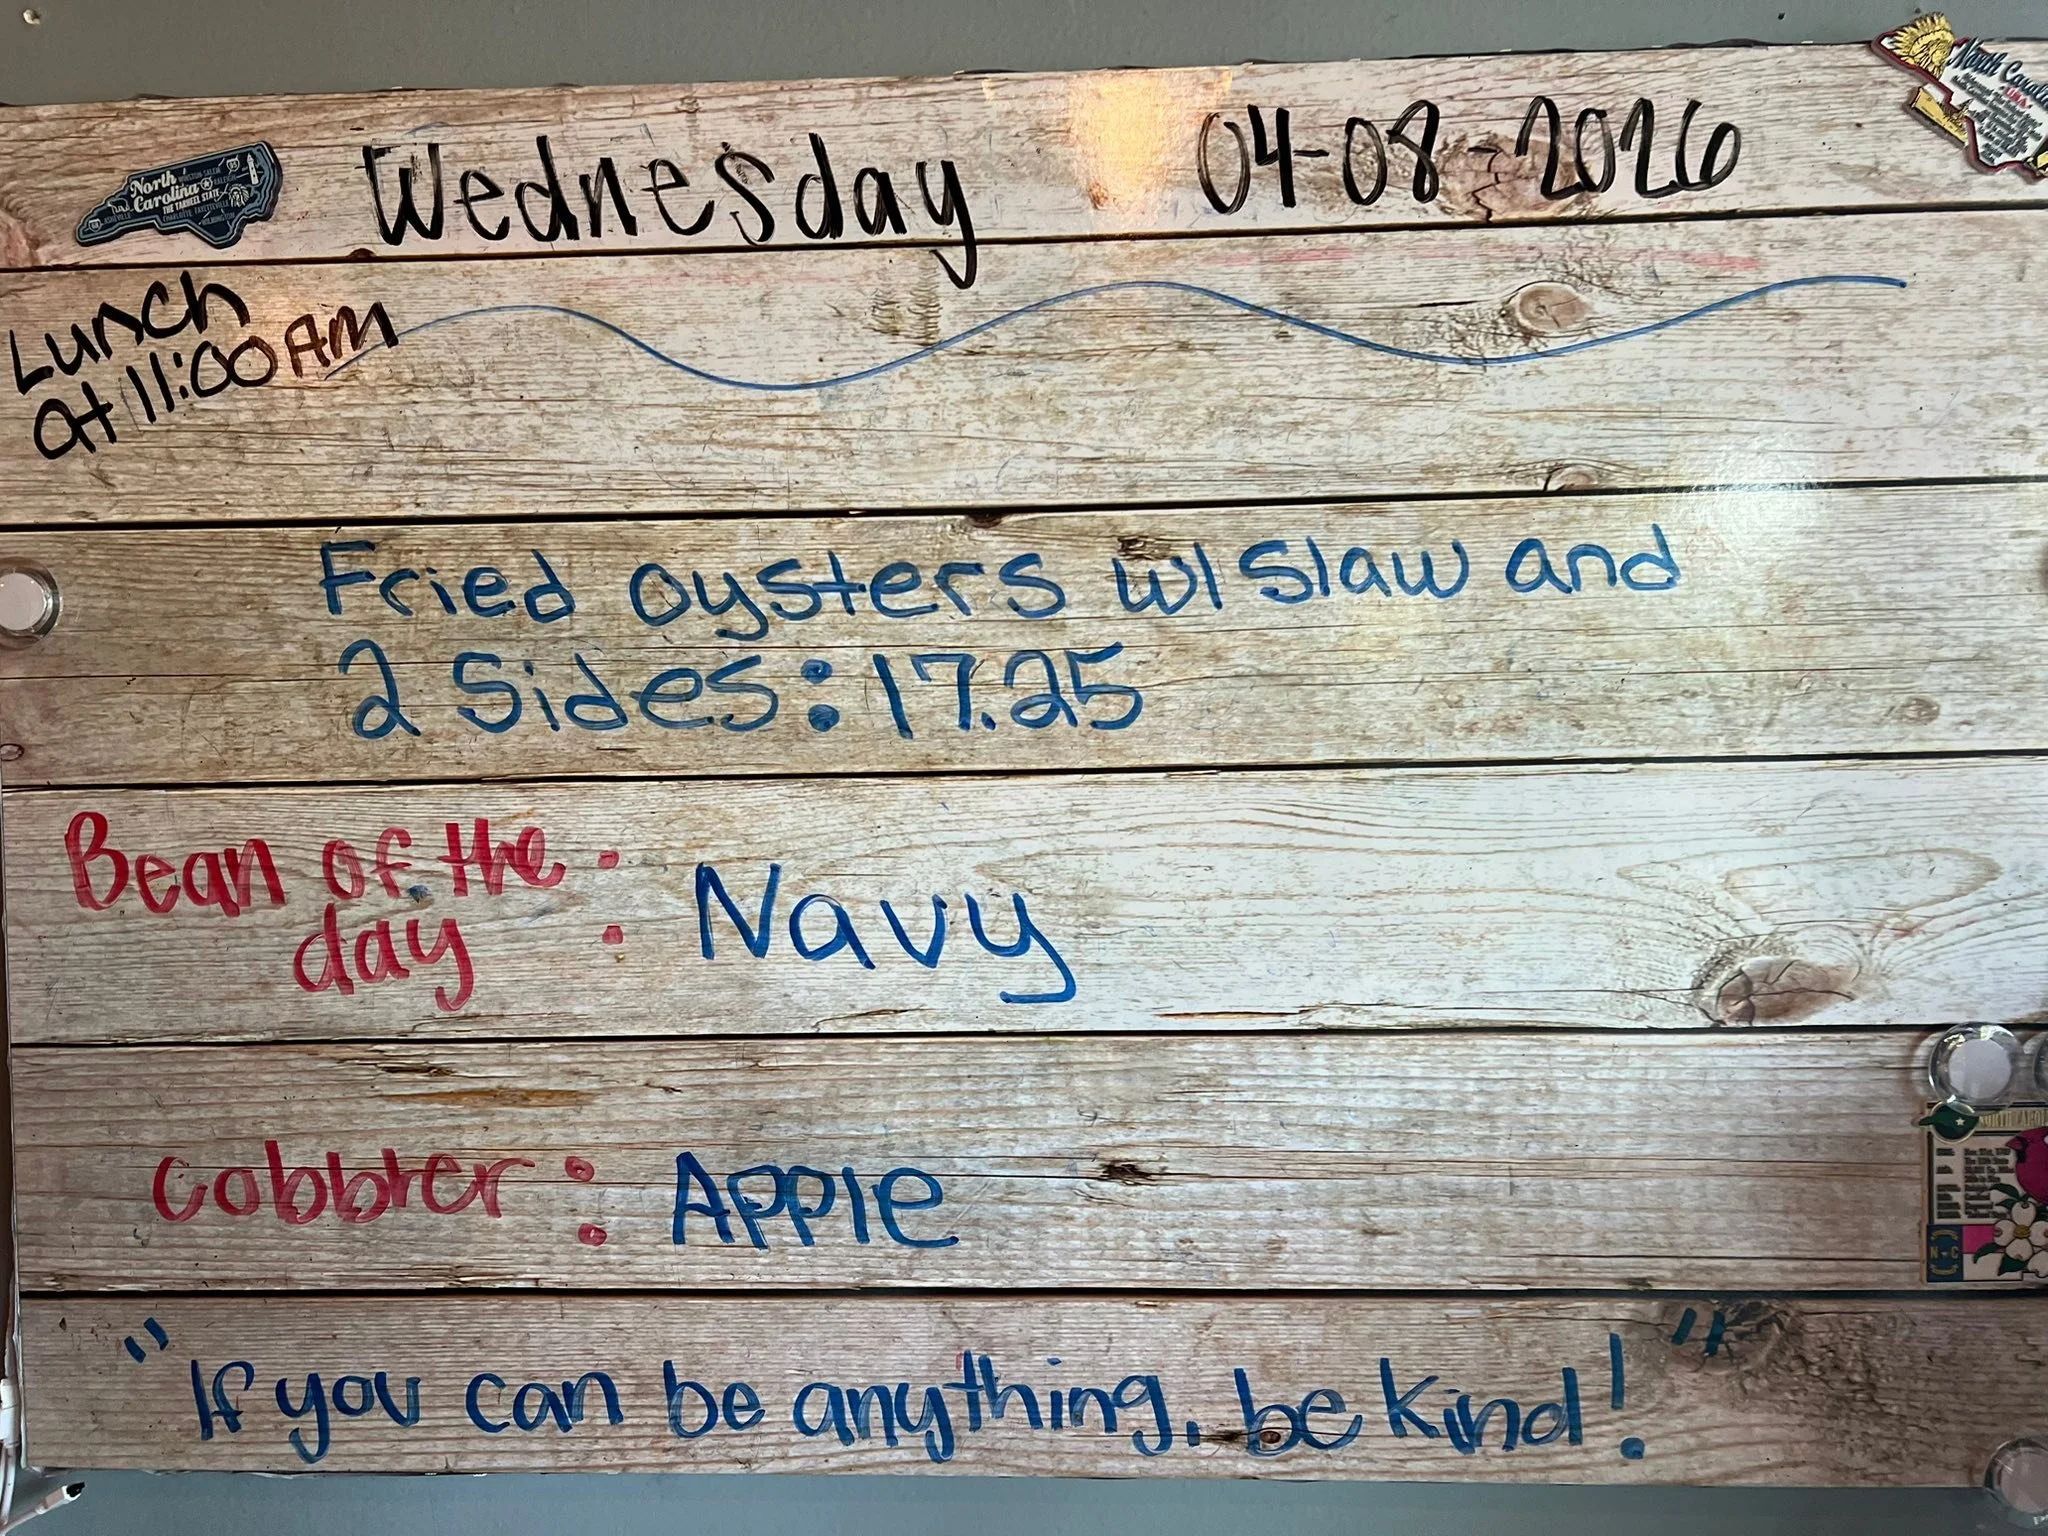 Wednesday 04-08-2026
North Carolina
THE TARHEEL STATE
North Carolina
Lunch
at 11:00 AM
Fried oysters w/ slaw and
2 sides: 17.25
Bean of the
day : Navy
cobbler : Apple
"If you can be anything, be kind!"
N C